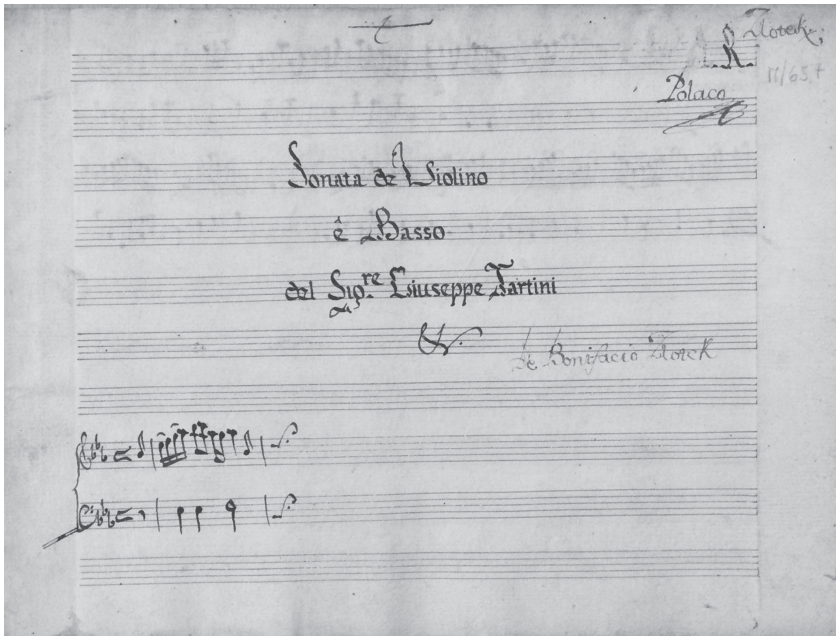 Zlotek
R.
Polaco
Sonata de Violino
ê Basso
del Sig.re Giuseppe Tartini
De Bonifacio Zlotek